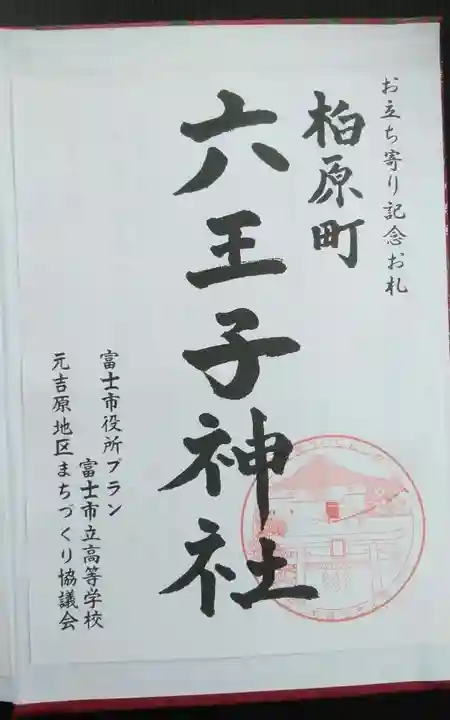 お立ち寄り記念お札
柏原町
六王子神社
富士市役所プラン
富士市立高等学校
元吉原地区まちづくり協議会